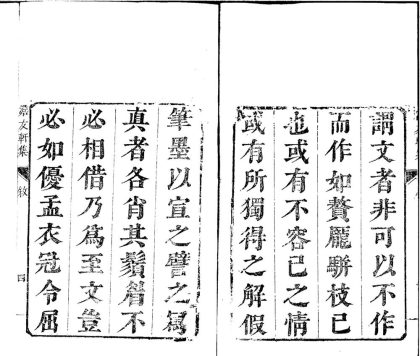 謂文者非可以不作
而作如贅龐駢枝已
也或有不容已之情
或有所獨得之解假
筆墨以宣之譬之寫
真者各肖其鬚眉不
必相借乃爲至文豈
必如優孟衣冠令屈
友軒集
四